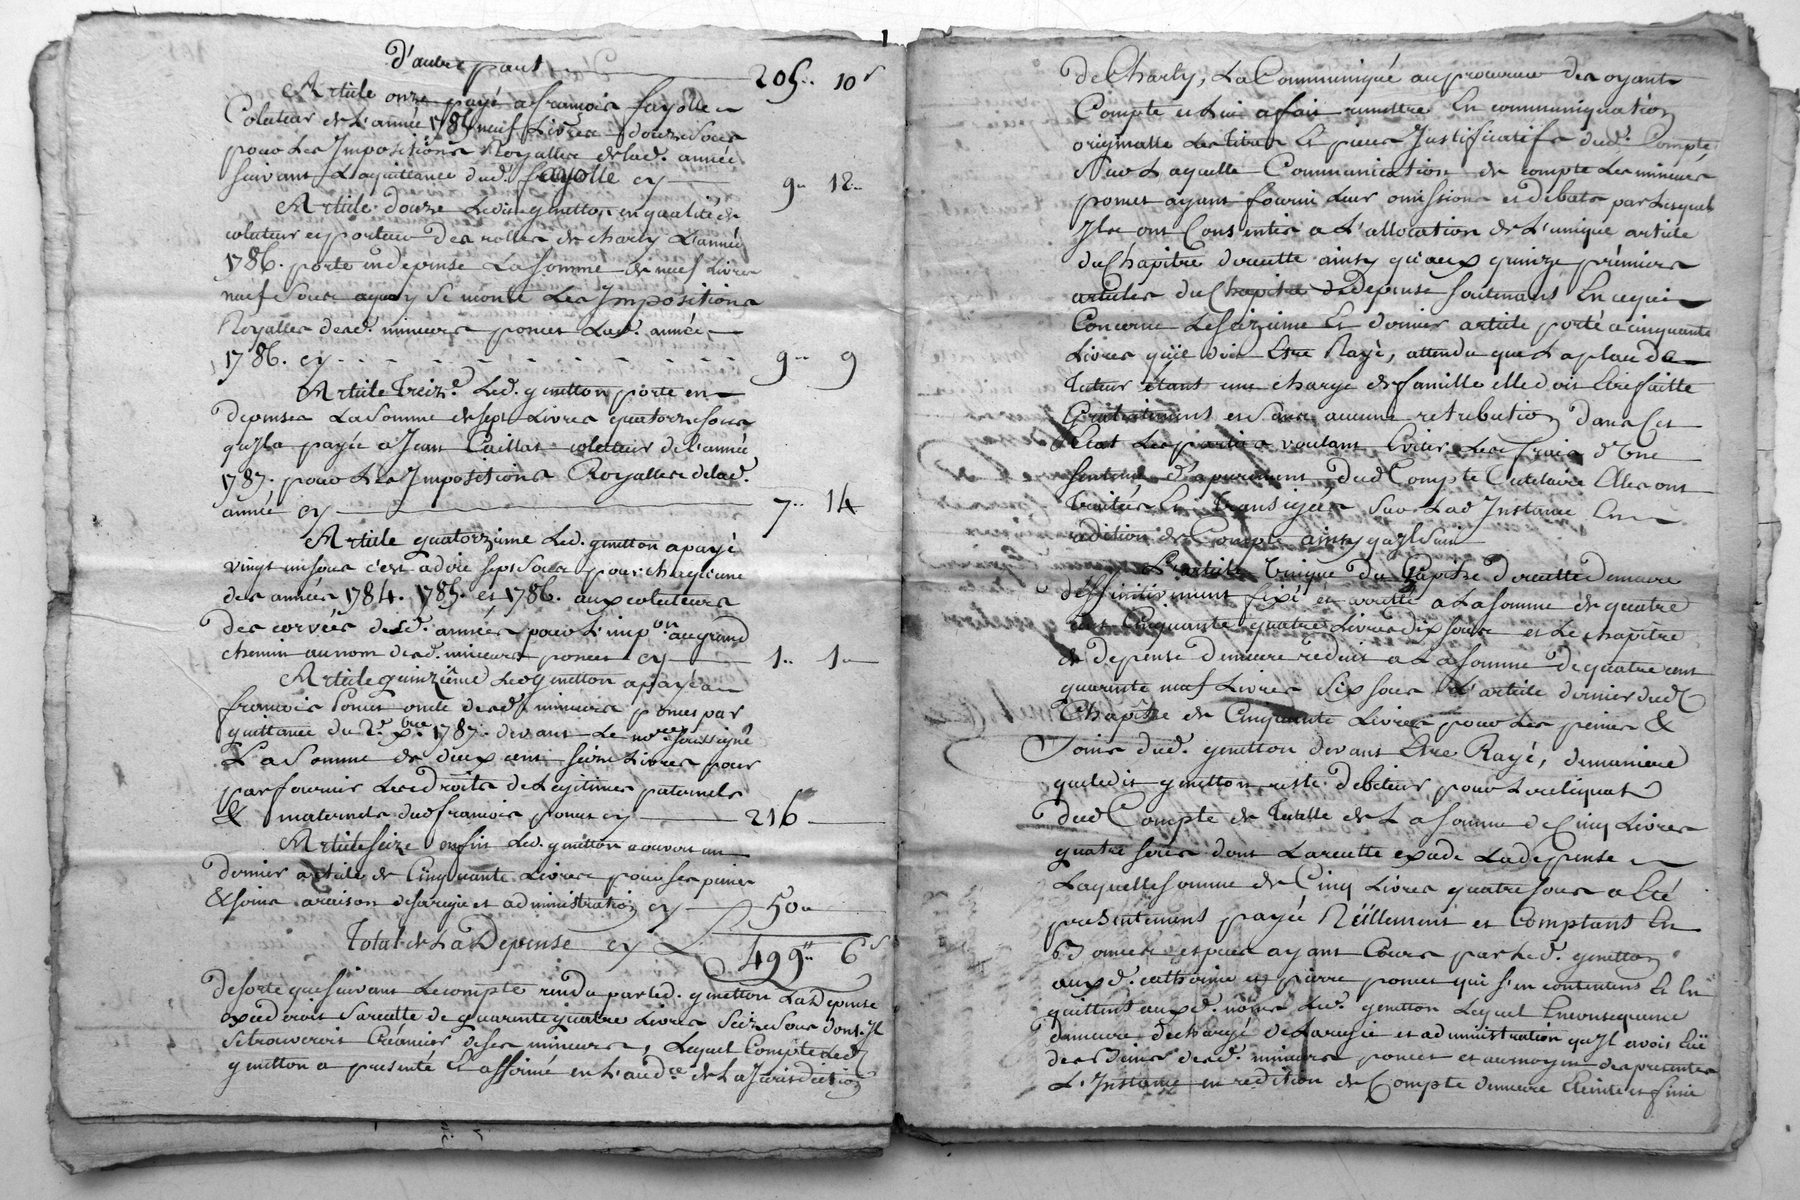 d'autre part 205.. 10 s
Article onze payé a françois fayolle
Colecteur de L'année 1785 neuf Livres douze sous
pour Les Impositions Royalles de lad. année
suivant La quittance dud. fayolle cy 9.. 12..
Article douze Ledit gnetton en qualité de
colecteur et porteur des rolles de charly L'année
1786. porte en depense La somme de neuf Livres
neuf sous a quoy se monte Les Impositions
Royalles desd. mineurs poncet Lad. année
1786. cy 9.. 9
Article treize Led. gnetton porte en
depense La somme de sept Livres quatorze sous
qu'il a payée a Jean Caillat colecteur de l'année
1787. pour Les Impositions Royalles de lad.
année cy 7.. 14
Article quatorzieme Led. gnetton a payé
vingt un sous c'est a dire sept sous pour chaqu'une
des années 1784. 1785. et 1786. aux colecteurs
des corvées desd. années pour L'impon. au grand
chemin au nom desd. mineurs poncet cy 1.. 1..
Article quinzieme Led. gnetton a payé a
françois Poncet oncle desd. mineurs poncet par
quittance du 2e. xbre. 1787. devant Le nore. soussigné
La somme de deux cent seize Livres pour
parfournir Les droits de Legitimes paternels
& maternels dud. françois poncet cy 216
Article seize enfin Led. gnetton a couvert un
dernier article de Cinquante Livres pour ses peines
& soins a raison de sa regie et administration cy 50..
Total de La Depense cy 499.. 6 s
de sorte que suivant Le compte rendu par led. gnetton La depense
excederoit La recette de quarante quatre Livres seize sous dont il
se trouveroit Créancier de ses mineurs, Lequel Compte Led.
gnetton a presenté et affirmé en L'audce. de La Jurisdiction
de Charly, La Communiqué au procureur des oyants
Compte et Lui a fait remettre En communication
originalle Les titres Et pieces Justificatifs dud. Compte
Sur Laquelle Communication de compte Les mineurs
poncet ayant fourni Leur omissions et debats par Lesquels
Ils ont Consentis a L'allocation de L'unique article
du Chapitre de recette ainsy qu'aux quinze prémiers
articles du Chapitre de depense soutenant En ce qui
Concerne Le seizieme Et dernier article porté a cinquante
Livres qu'il doit Etre Rayé, attendu que La place de
tuteur étant une charge de famille elle doit Etre faitte
Gratuitement et sans aucune retribution dans Cet
Etat Les parties voulant Eviter Les frais d'Une
sentence d'apurement dud. Compte tutelaire Elles ont
traitées Et transigées Sur Lad. Instance En
redition de Compte ainsy qu'il suit
L'article Unique du Chapitre de recette demeure
deffinitivement fixé et arretté a La somme de quatre
cent Cinquante quatre Livres dix sous et Le chapitre
de depense demeure reduit a La somme de quatre cent
quarante neuf Livres six sous L'article dernier dud.
Chapitre de Cinquante Livres pour Les peines &
soins dud. gnetton devant Etre Rayé, de maniere
que Ledit gnetton reste debiteur pour Le reliquat
dud. Compte de tutelle de La somme de Cinq Livres
quatre sous dont La recette excede La depense
Laquelle somme de Cinq Livres quatre sous a Eté
presentement payée Réellement et Comptant En
especes ayant Cours par Led. gnetton
auxd. catherine et pierre poncet qui s'en contentent Et En
quittent Led. gnetton Lequel En consequence
demeure dechargé de La regie et administration qu'il avoit Eüe
des Biens desd. mineurs poncet et au moyen des presentes
L'Instance en redition de Compte demeure éteinte et finie